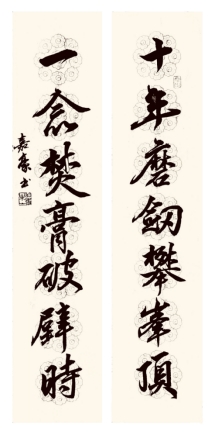 十年磨劍攀峯頂
一念焚膏破壁時